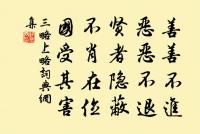 善善不進
惡惡不退
賢者隱蔽
不肖在位
國受其害
三略上略詞典網
集